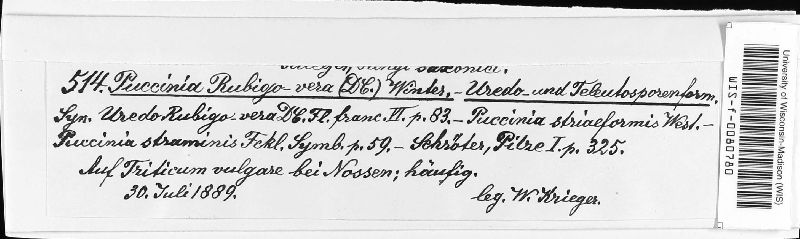 Krieger, Fungi saxonici.
514. Puccinia Rubigo-vera (DC.) Winter. – Uredo- und Teleutosporenform.
Syn. Uredo Rubigo-vera DC. Fl. franc. VI. p. 83. – Puccinia striaeformis West. –
Puccinia straminis Fckl. Symb. p. 59. – Schröter, Pilze I. p. 325.
Auf Triticum vulgare bei Nossen; häufig.
30. Juli 1889. leg. W. Krieger.
University of Wisconsin-Madison (WIS)
WIS-f-0080780